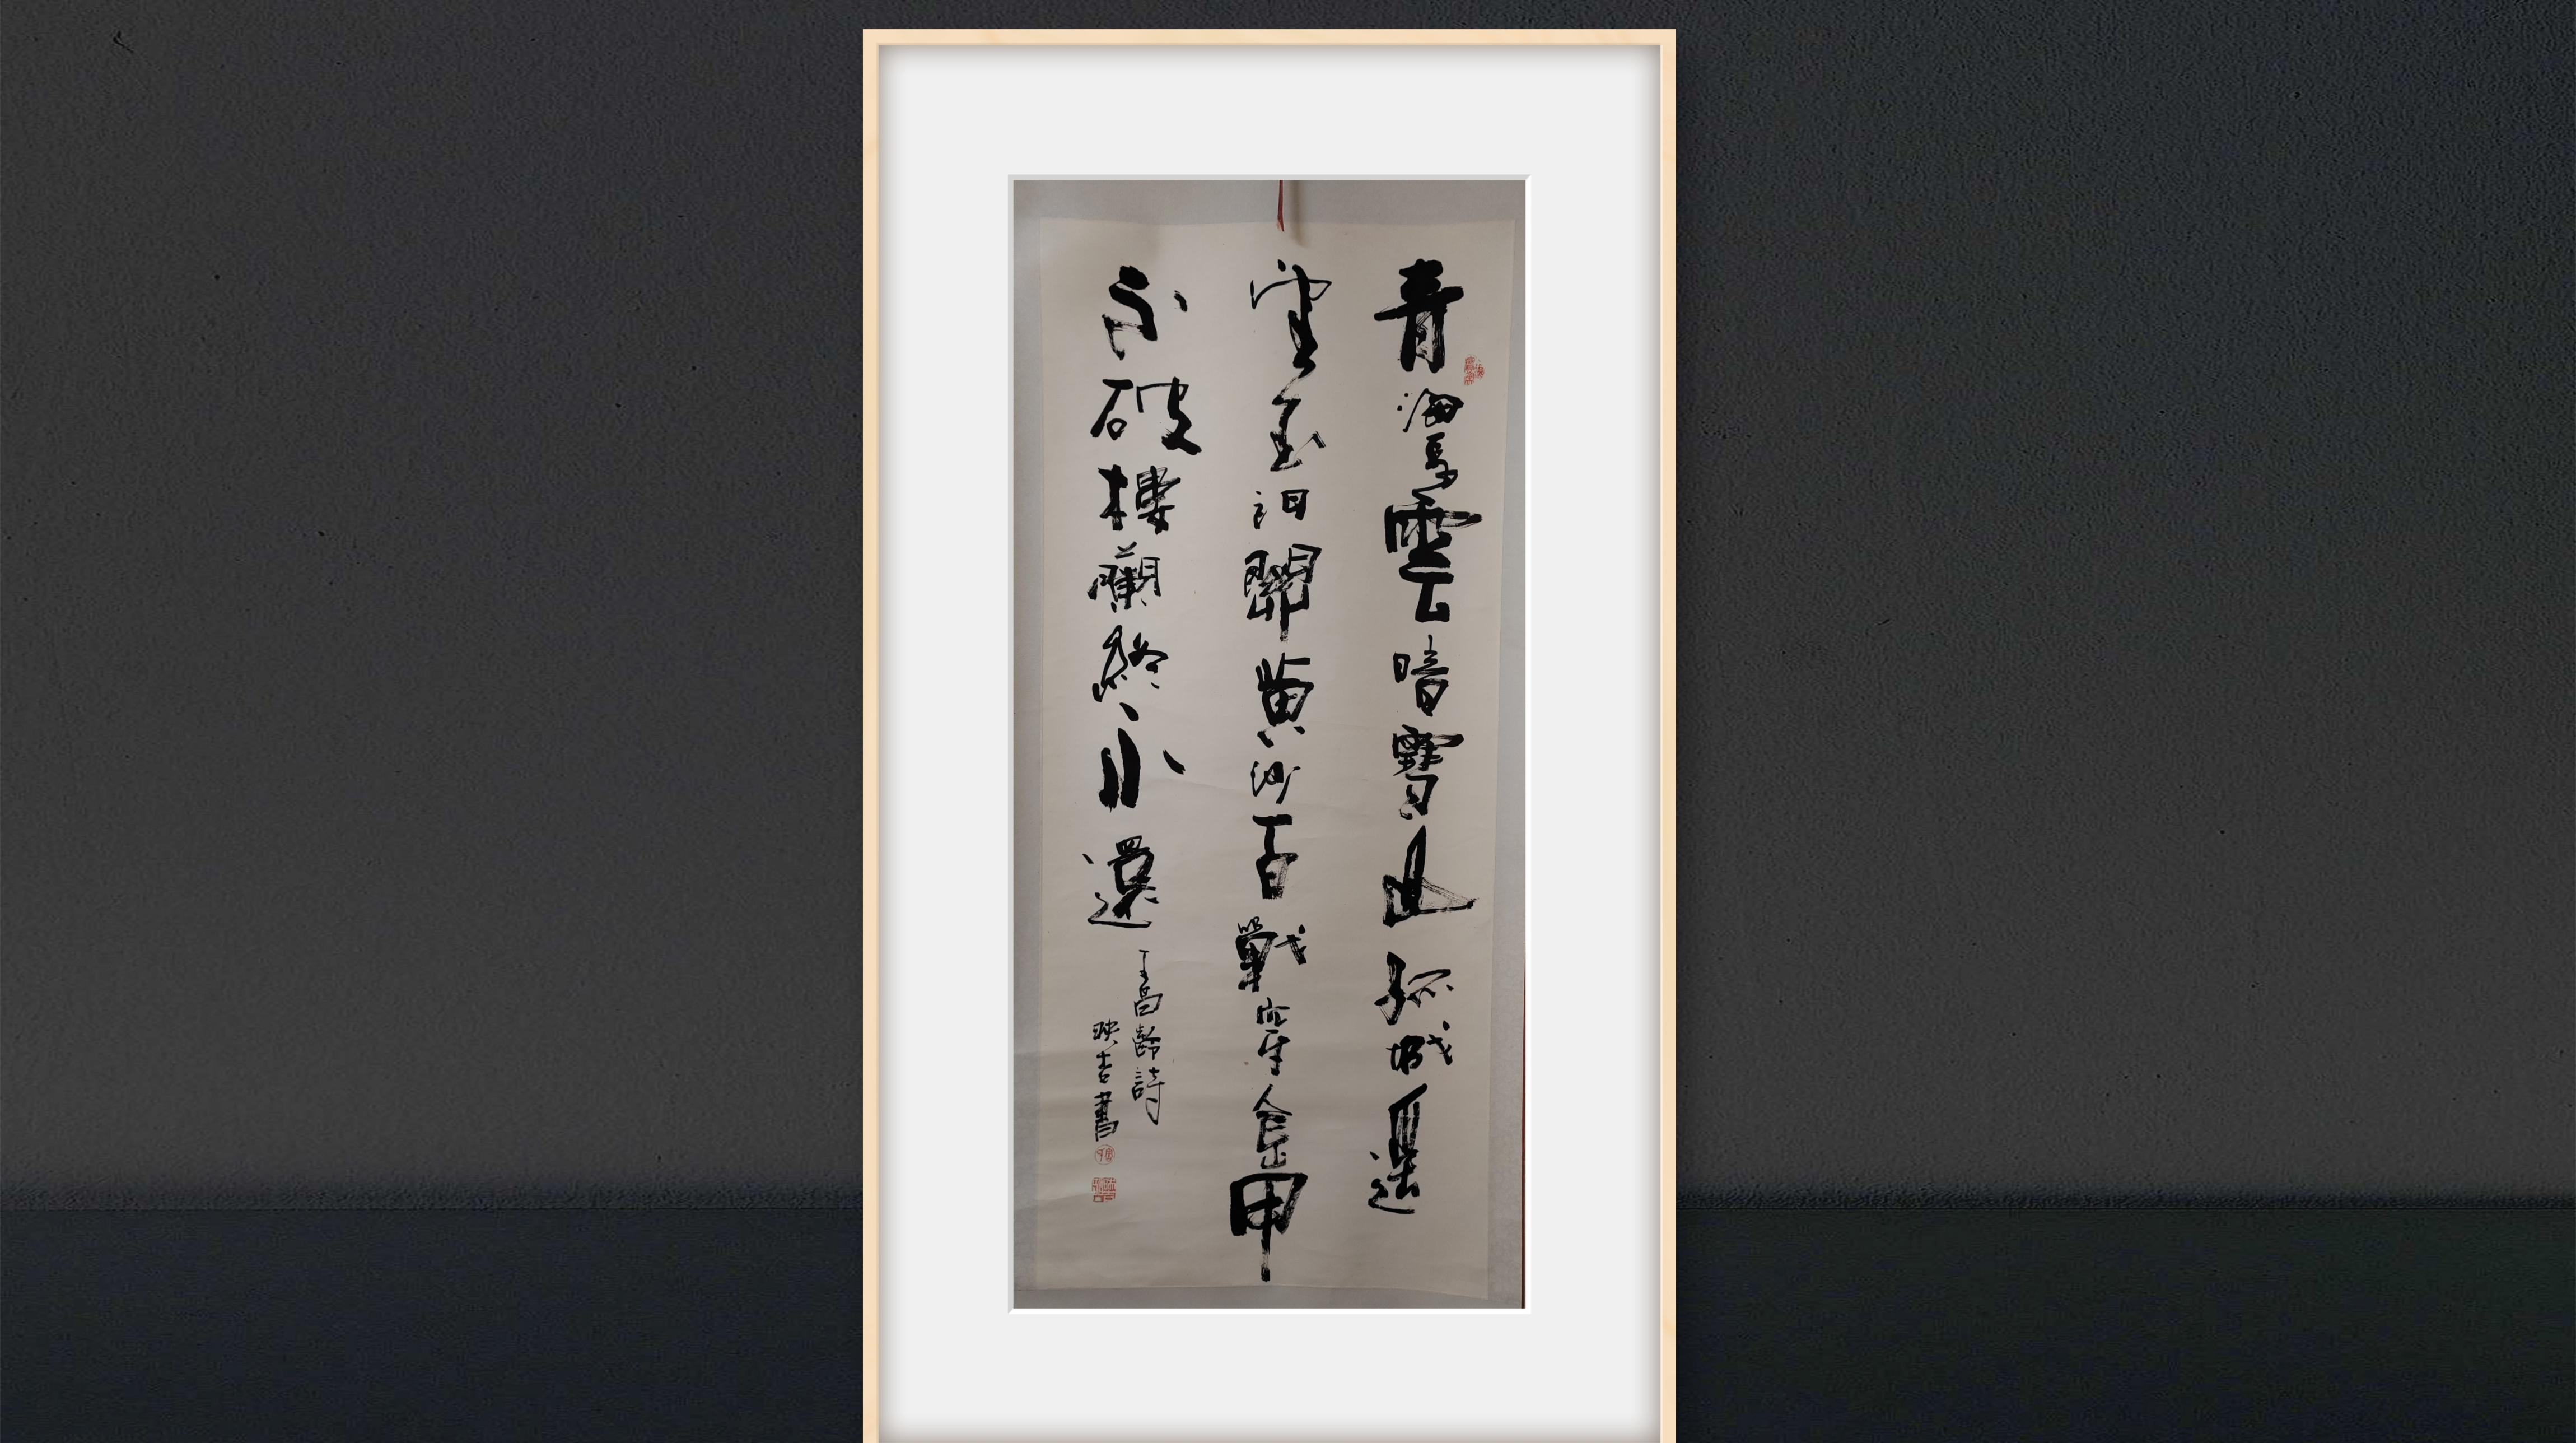 青海長雲暗雪山孤城遥
望玉門關黄沙百戰穿金甲
不破樓蘭終不還
王昌齡詩
映吉書